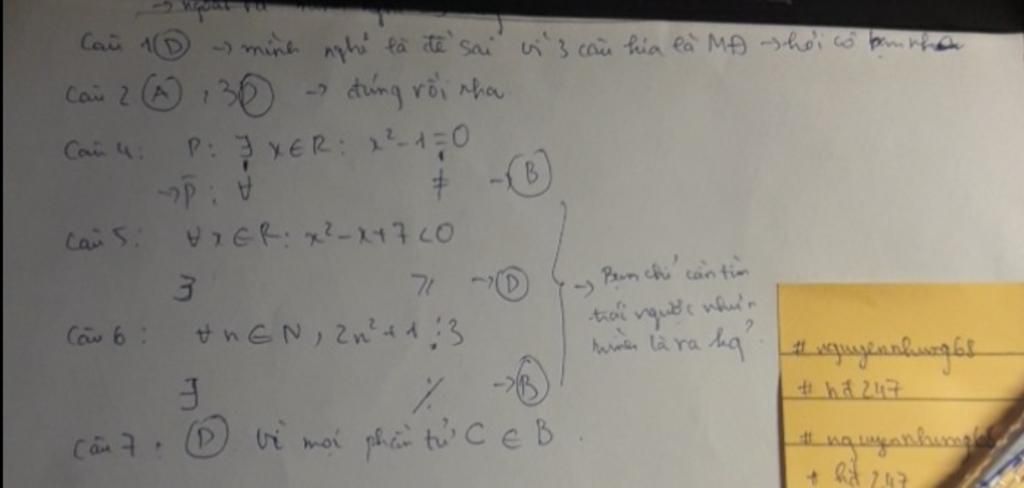 Câu 1 (D) → mình nghĩ là đề sai vì 3 câu kia là MĐ → hỏi cô bạn nha
Câu 2 (A), 3 (D) → đúng rồi nha
Câu 4: P: ∃ x ∈ R: x² - 1 = 0
→ P̄: ∀ ≠ → (B)
Câu 5: ∀ x ∈ R: x² - x + 7 < 0
∃ ≥ → (D)
Câu 6: ∀ n ∈ N, 2n² + 1 ⋮ 3
∃ ⋮̸ → (B)
→ Bạn chỉ cần tìm
trái ngược như
mình là ra kq
Câu 7: (D) vì mọi phần tử C ∈ B.
# nguyennhung68
# hđ 247
# nguyennhung68
# hđ 247